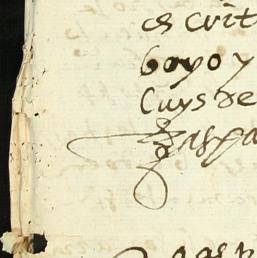 es crit
boyo y
Luys de
Gaspa